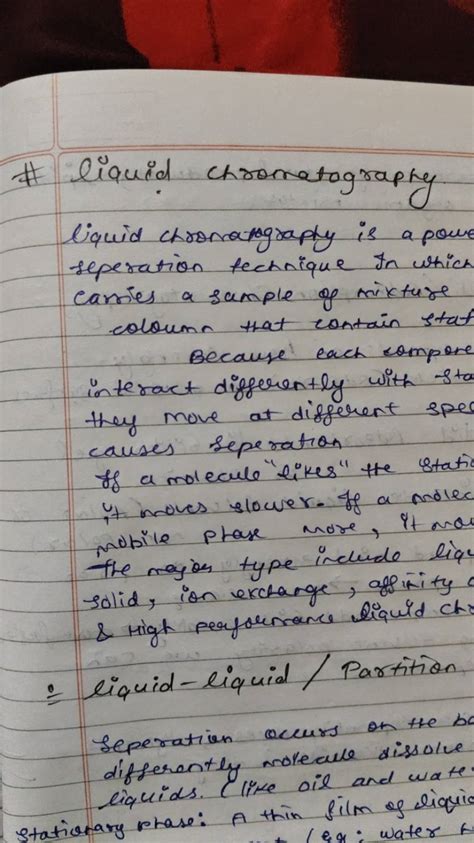 # liquid chromatography
liquid chromatography is a powe
seperation technique In which
carries a sample of mixture
coloumn that contain stat
Because each compone
interact differently with sta
they move at different spee
causes seperation
If a molecule "likes" the stati
it moves slower. If a molec
mobile phase more, it mov
The major type include liqu
solid, ion exchange, affinity c
& High performance liquid chr
liquid-liquid / Partition
seperation occurs on the ba
differently molecule dissolve
liquids. (like oil and wate
stationary phase: A thin film of liquid
(eg: water